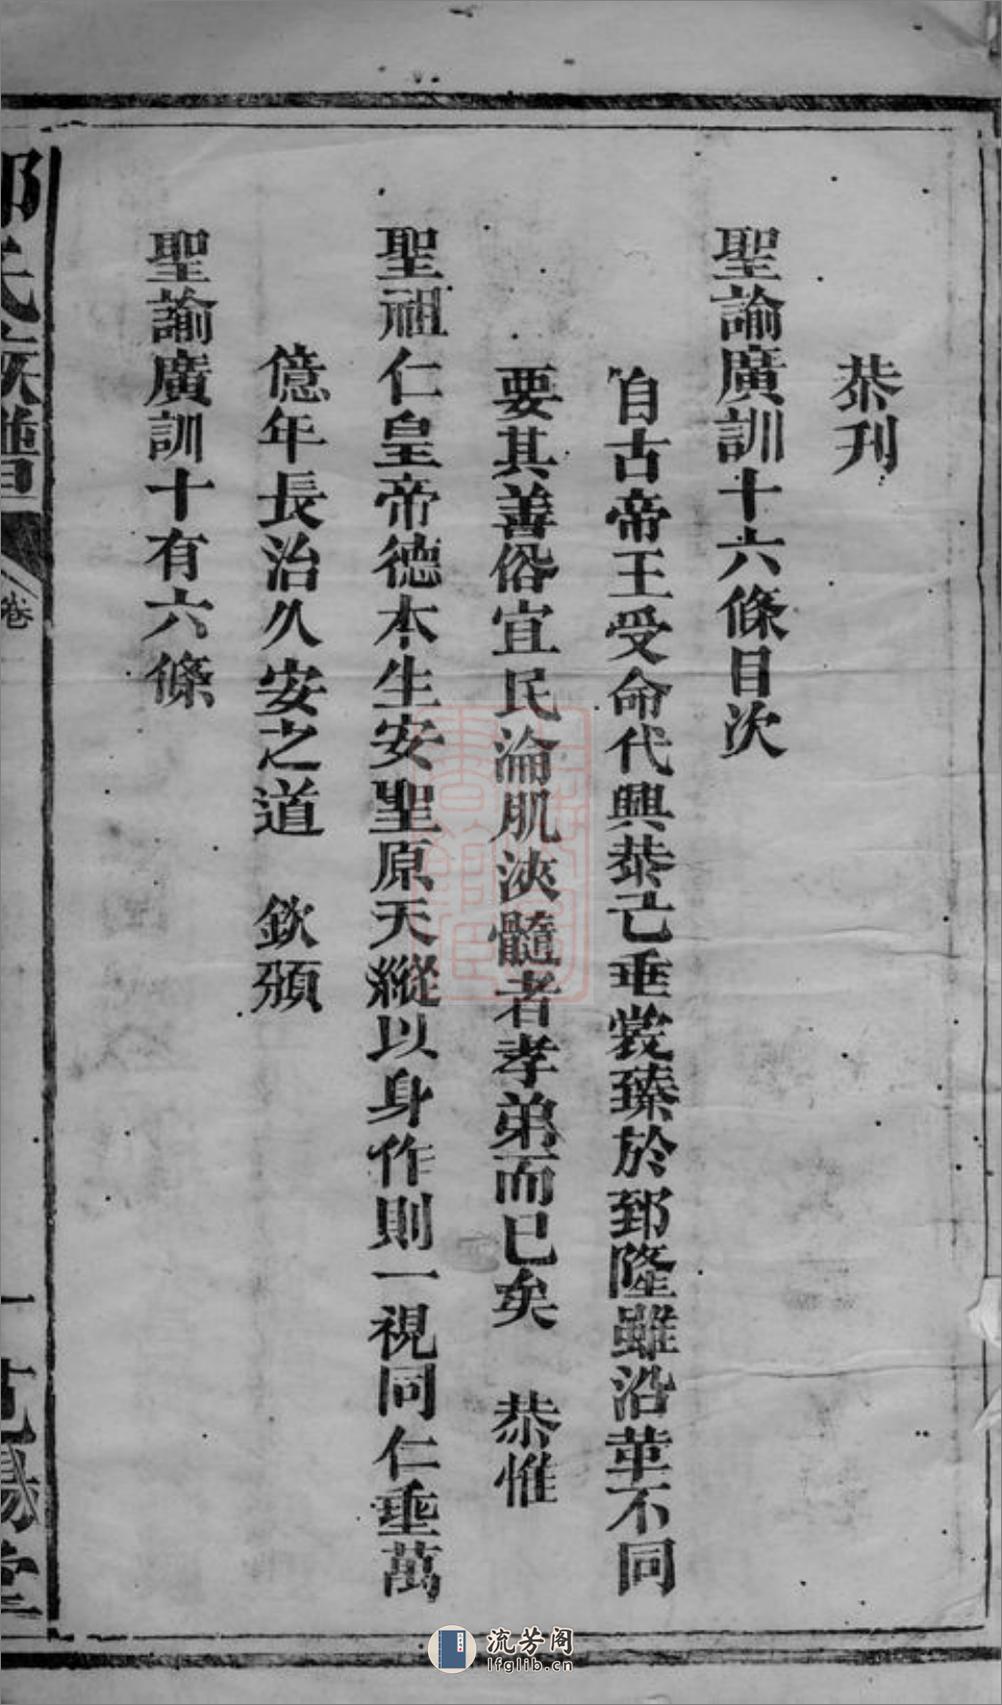 恭刊
聖諭廣訓十六條目次
自古帝王受命代興恭己垂裳臻於郅隆雖沿革不同
要其善俗宜民淪肌浹髓者孝弟而已矣　恭惟
聖祖仁皇帝德本生安聖原天縱以身作則一視同仁垂萬
億年長治久安之道　欽頒
聖諭廣訓十有六條
氏族譜
卷
一
陽堂
流芳阁
lfglib.cn